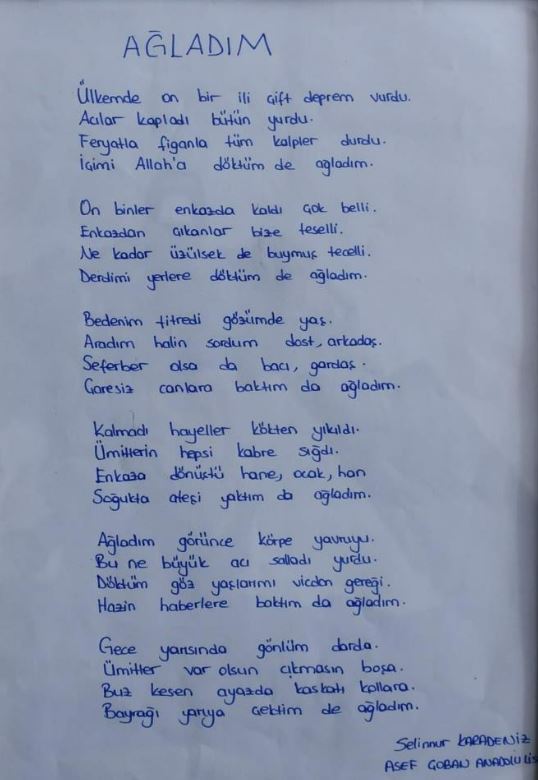 AĞLADIM
Ülkemde on bir ili çift deprem vurdu.
Acılar kapladı bütün yurdu.
Feryatla figanla tüm kalpler durdu.
İçimi Allah'a döktüm de ağladım.
On binler enkazda kaldı çok belli.
Enkazdan çıkanlar bize teselli.
Ne kadar üzülsek de buymuş tecelli.
Derdimi yerlere döktüm de ağladım.
Bedenim titredi gözümde yaş.
Aradım halin sordum dost, arkadaş.
Seferber olsa da bacı, gardaş.
Çaresiz canlara baktım da ağladım.
Kalmadı hayeller kökten yıkıldı.
Ümitlerin hepsi kabre sığdı.
Enkaza dönüştü hane, ocak, han
Soğukta ateşi yaktım da ağladım.
Ağladım görünce körpe yavruyu.
Bu ne büyük acı salladı yurdu.
Döktüm göz yaşlarımı vicdan gereği.
Hazin haberlere baktım da ağladım.
Gece yarısında gönlüm darda.
Ümitler var olsun çıkmasın boşa.
Buz kesen ayazda kaskatı kollara.
Bayrağı yarıya çektim de ağladım.
Selinnur KARADENİZ
ASEF ÇOBAN ANADOLU LİS